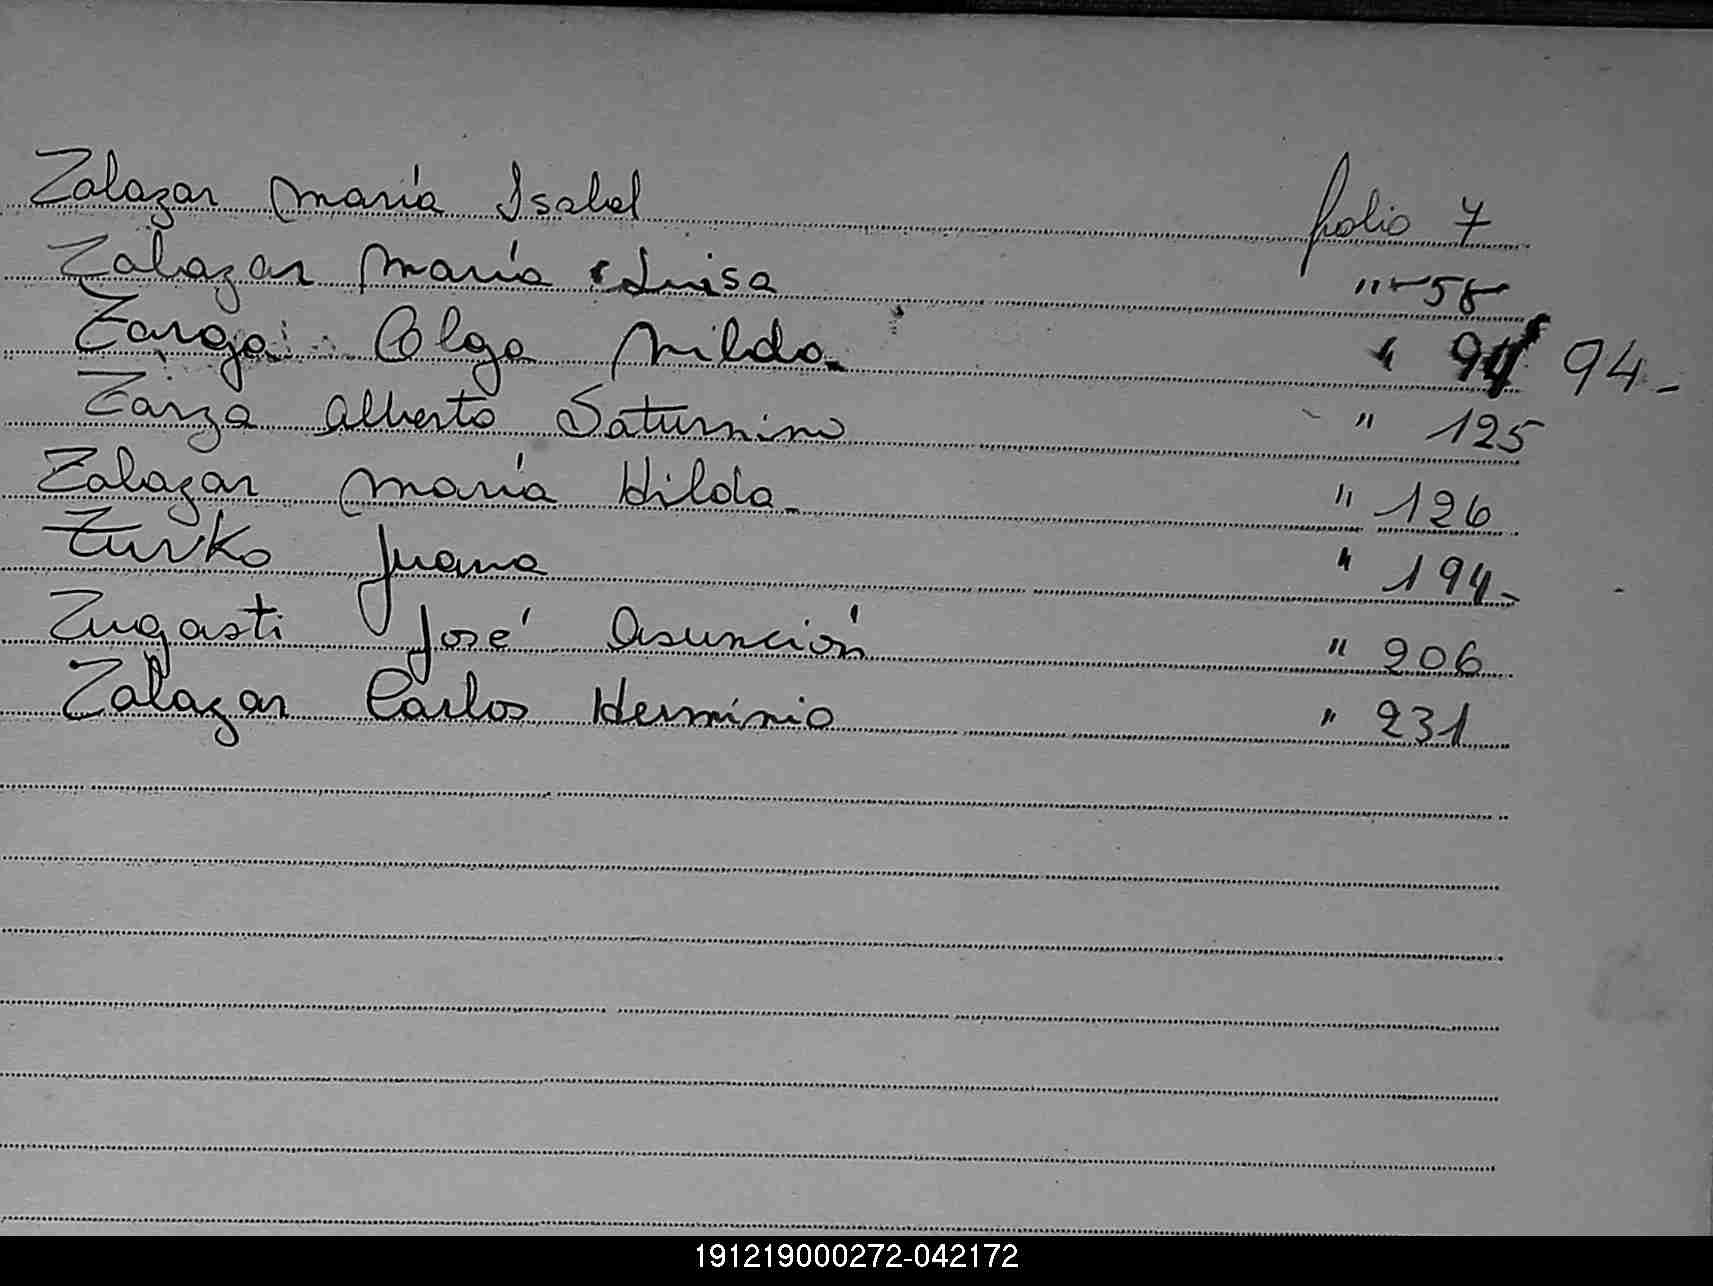 Zalazar María Isabel folio 7
Zalazar María Luisa " 58
Zarga Olga Nilda " 94 94-
Zarza Alberto Saturnino " 125
Zalazar María Hilda " 126
Zurko Juana " 194-
Zugasti José Asunción " 206
Zalazar Carlos Herminio " 231
191219000272-042172